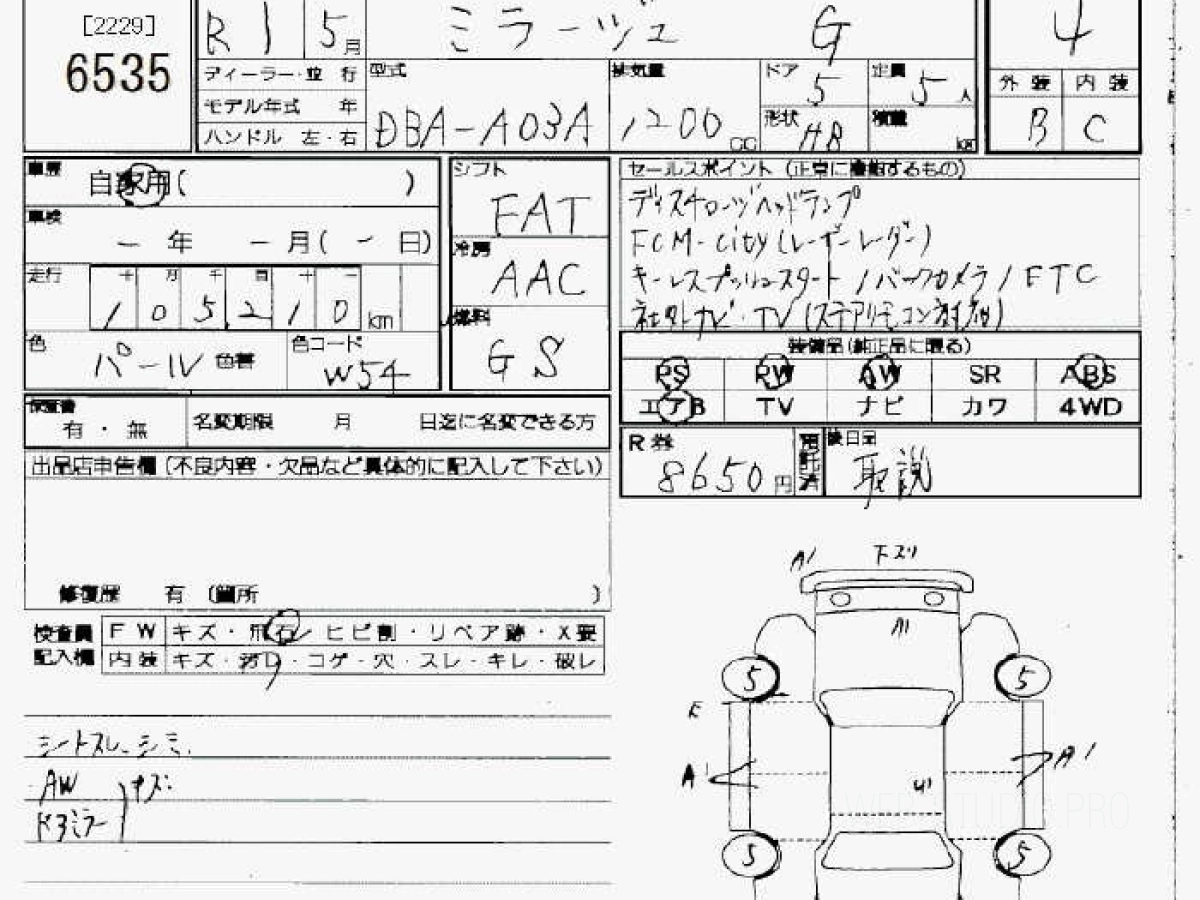 [2229]
6535
R1 5月
ミラージュ G
4
ディーラー・並行
モデル年式 年
ハンドル 左・右
型式
DBA-A03A
排気量
1200 CC
ドア
5
定員
5人
形状
HB
積載
kg
外装 内装
B C
車歴
自家用( )
車検
- 年 - 月( - 日)
走行
十 万 千 百 十 一
105,210 km
色
パール 色替
色コード
W54
シフト
FAT
冷房
AAC
燃料
GS
セールスポイント (正常に機能するもの)
ディスチャージヘッドランプ
FCM-City(レーザーレーダー)
キーレスプッシュスタート/バックカメラ/ETC
社外ナビ・TV(ステアリモコン
装備品(純正品に限る)
PS PW AW SR ABS
エアB TV ナビ カワ 4WD
保証書
有・無
名変期限 月 日迄に名変できる方
R券
8650円
預託済
後日品
取説
出品店申告欄(不良内容・欠品など具体的に記入して下さい)
修復歴 有 (箇所 )
検査員記入欄
FW キズ・飛石・ヒビ割・リペア跡・X要
内装 キズ・汚レ・コゲ・穴・スレ・キレ・破レ
シートスレ、シミ、
AW
ドアミラー
キズ
A1 下スリ
A1
5 5
E
A1 A1
U1
5 5
WEB STUDIO PRO